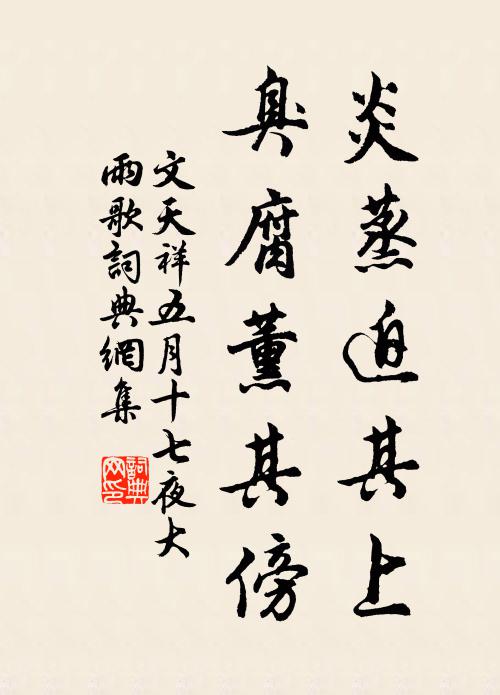 炎蒸迫其上
臭腐薰其傍
文天祥五月十七夜大
雨歌詞典網集
詞典
网印